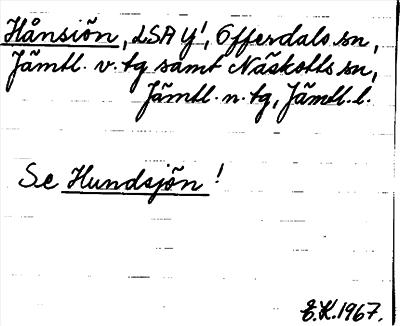 Hånsiön, LSA Y!, Offerdals sn,
Jämtl. v. tg samt Näskotts sn,
Jämtl. n. tg, Jämtl. l.
Se Hundsjön!
E.K. 1967.